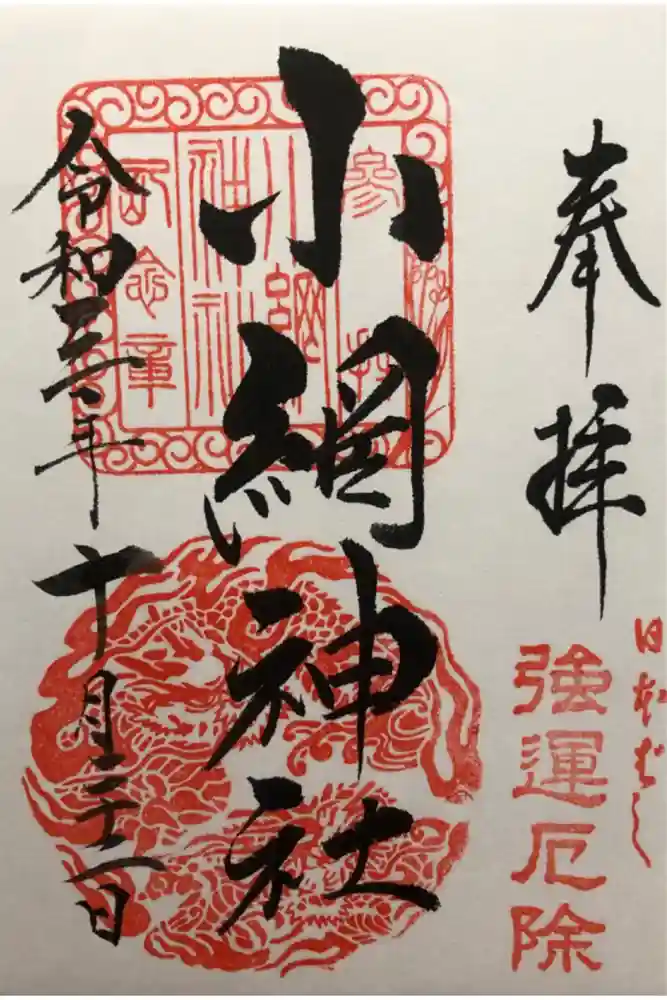 奉拝
日本ばし
強運厄除
小網神社
参拝
小網
神社
記念章
令和三年十月二十一日